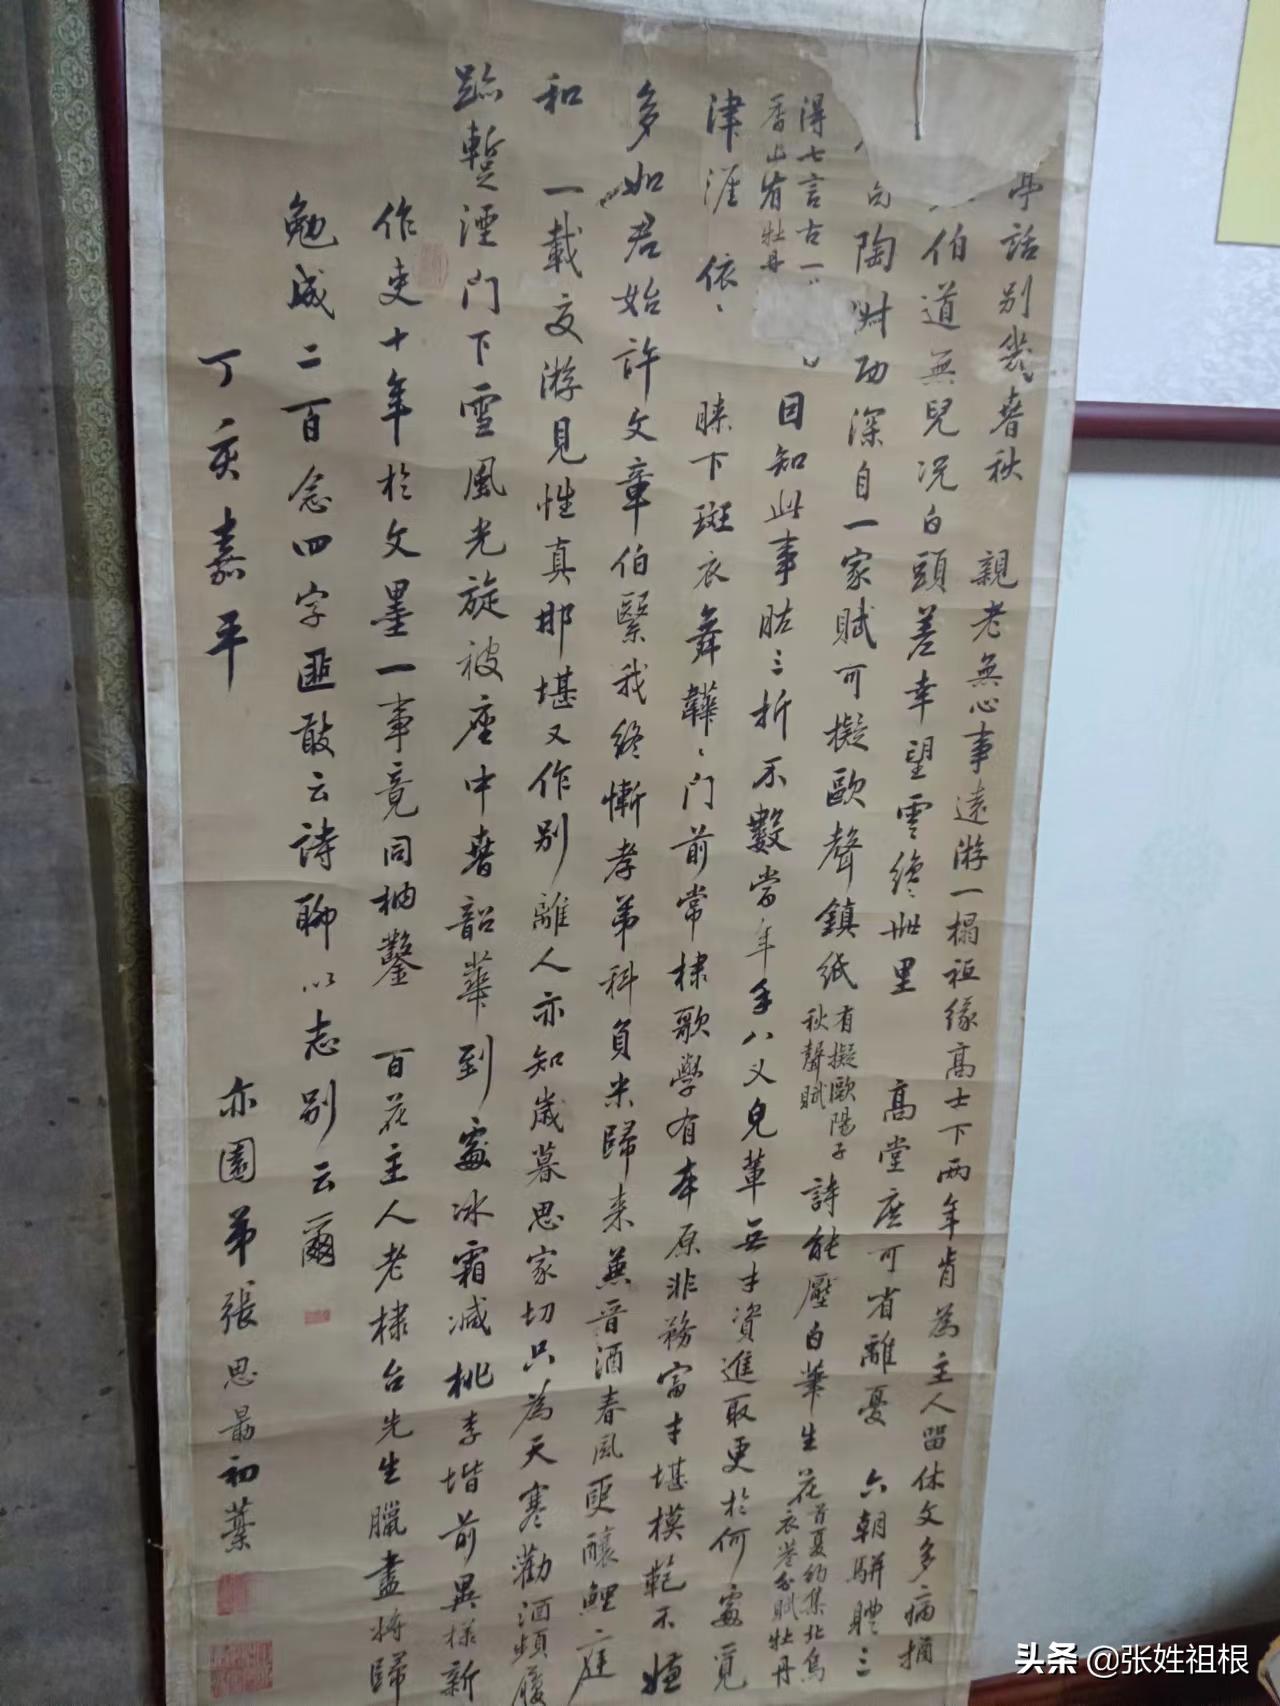 亭話別幾春秋　親老無心事遠游一榻祗緣高士下兩年肯為主人留休文多病
伯道無兒況白頭差幸望雲繞卌里　高堂庶可省離憂　六朝駢體三
陶尌功深自一家賦可擬歐聲鎮紙有擬歐陽子秋聲賦詩能壓白華生花首夏約集北烏衣巷分賦牡丹
得七言古一
香山省牡丹
目知此事肱三折不數當年手八叉兒輩無才資進取更於何處覓
津涯　依〻　膝下斑衣舞韡〻門前常棣歌學有本原非務富才堪模範不嫌
多如君始許文章伯繄我終慚孝弟科負米歸來無晉酒春風更釀鯉庭
和　一載交游見性真那堪又作別離人亦知歲暮思家切只為天寒勸酒頻履
跡蹔湮門下雪風光旋被座中春韶華到處冰霜減桃李堦前異樣新
作吏十年於文墨一事竟同枘鑿　百花主人老棣台先生臘盡將歸
勉成二百念四字匪敢云詩聊以志別云爾
丁亥嘉平　亦園弟張思勗初藁
头条 @张姓祖根